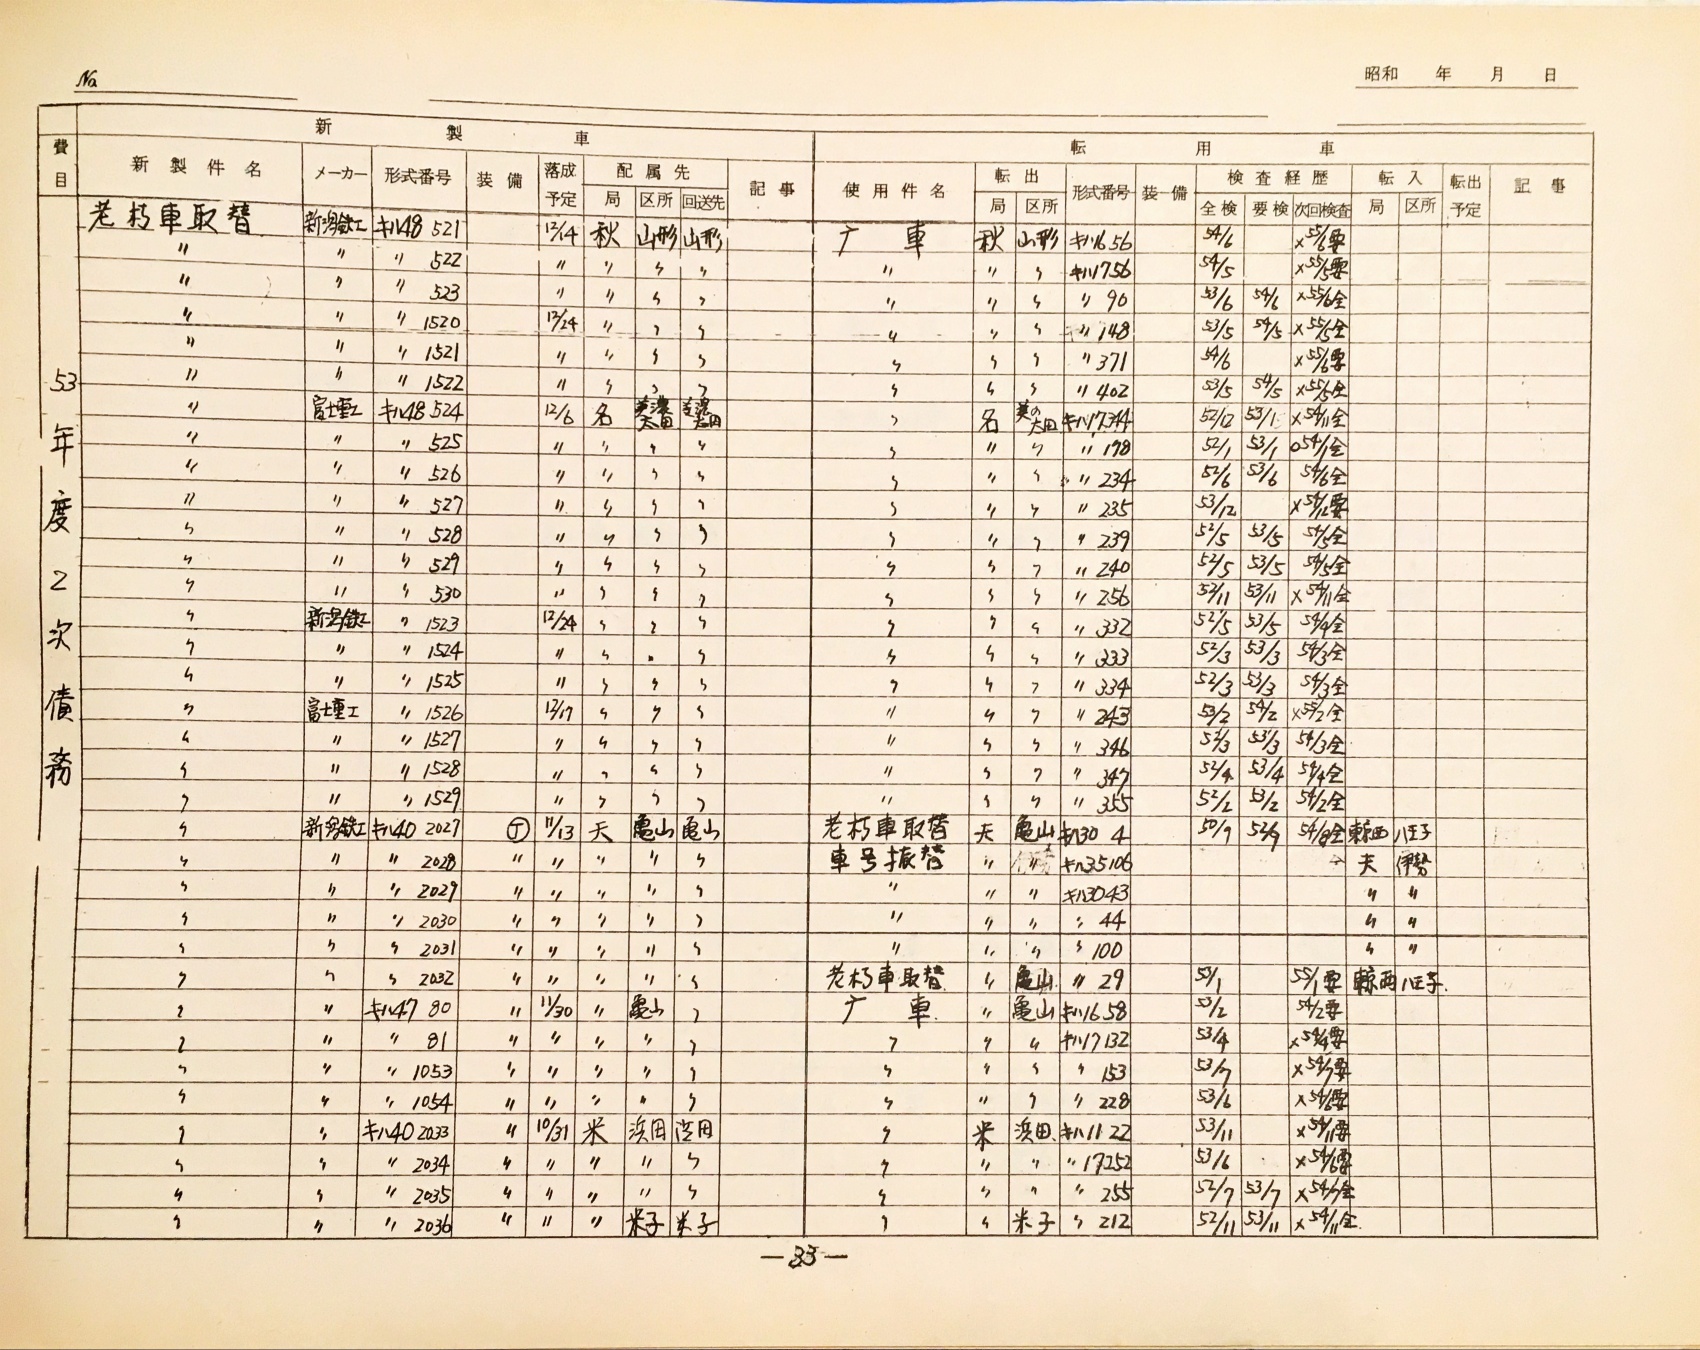 No.
昭和 年 月 日
費目 新製車 転用車
新製件名 メーカー 形式番号 装備 落成予定 配属先 記事 使用件名 転出 形式番号 装備 検査経歴 転入 転出予定 記事
局 区所 回送先 局 区所 全検 要検 次回検査 局 区所
53年度2次債務
老朽車取替 新潟鉄工 キハ48 521 12/14 秋 山形 山形 广車 秋 山形 キハ16 56 54/6 ×55/6要
〃 〃 〃 522 〃 〃 〃 〃 〃 〃 〃 キハ17 56 54/5 ×55/5要
〃 〃 〃 523 〃 〃 〃 〃 〃 〃 〃 〃 90 53/6 54/6 ×55/6全
〃 〃 〃 1520 12/24 〃 〃 〃 〃 〃 〃 〃 148 53/5 54/5 ×55/5全
〃 〃 〃 1521 〃 〃 〃 〃 〃 〃 〃 〃 371 54/6 ×55/6要
〃 〃 〃 1522 〃 〃 〃 〃 〃 〃 〃 〃 402 53/5 54/5 ×55/5全
〃 富士重工 キハ48 524 12/6 名 美濃太田 美濃太田 〃 名 美の太田 キハ17 344 52/12 53/1 ×54/11全
〃 〃 〃 525 〃 〃 〃 〃 〃 〃 〃 〃 198 52/1 53/1 54/1全
〃 〃 〃 526 〃 〃 〃 〃 〃 〃 〃 〃 234 52/6 53/6 54/6全
〃 〃 〃 527 〃 〃 〃 〃 〃 〃 〃 〃 235 53/12 ×54/12要
〃 〃 〃 528 〃 〃 〃 〃 〃 〃 〃 〃 239 52/5 53/5 54/5全
〃 〃 〃 529 〃 〃 〃 〃 〃 〃 〃 〃 240 52/5 53/5 54/5全
〃 〃 〃 530 〃 〃 〃 〃 〃 〃 〃 〃 256 52/11 53/11 ×54/11全
〃 新潟鉄工 〃 1523 12/24 〃 〃 〃 〃 〃 〃 〃 332 52/5 53/5 54/4全
〃 〃 〃 1524 〃 〃 〃 〃 〃 〃 〃 〃 333 52/3 53/3 54/3全
〃 〃 〃 1525 〃 〃 〃 〃 〃 〃 〃 〃 334 52/3 53/3 54/3全
〃 富士重工 〃 1526 12/17 〃 〃 〃 〃 〃 〃 〃 243 53/2 54/2 ×55/2全
〃 〃 〃 1527 〃 〃 〃 〃 〃 〃 〃 〃 346 52/3 53/3 54/3全
〃 〃 〃 1528 〃 〃 〃 〃 〃 〃 〃 〃 347 52/4 53/4 54/4全
〃 〃 〃 1529 〃 〃 〃 〃 〃 〃 〃 〃 355 52/2 53/2 54/2全
〃 新潟鉄工 キハ40 2027 Ⓣ 11/13 天 亀山 亀山 老朽車取替 天 亀山 キハ30 4 50/9 52/9 54/8全 東京西 八王子
〃 〃 〃 2028 〃 〃 〃 〃 〃 車号振替 〃 〃 キハ35 106 天 伊勢
〃 〃 〃 2029 〃 〃 〃 〃 〃 〃 〃 〃 キハ30 43 〃 〃
〃 〃 〃 2030 〃 〃 〃 〃 〃 〃 〃 〃 〃 44 〃 〃
〃 〃 〃 2031 〃 〃 〃 〃 〃 〃 〃 〃 〃 100 〃 〃
〃 〃 〃 2032 〃 〃 〃 〃 〃 老朽車取替 〃 亀山 〃 29 55/1要 東京西 八王子
〃 〃 キハ47 80 〃 11/30 〃 亀山 〃 广車 〃 亀山 キハ16 58 53/2 54/2要
〃 〃 〃 81 〃 〃 〃 〃 〃 〃 〃 〃 キハ17 132 53/4 ×54/4要
〃 〃 〃 1053 〃 〃 〃 〃 〃 〃 〃 〃 〃 153 53/7 ×54/7要
〃 〃 〃 1054 〃 〃 〃 〃 〃 〃 〃 〃 〃 228 53/6 ×54/6要
〃 〃 キハ40 2033 〃 10/31 米 浜田 浜田 〃 米 浜田 キハ11 22 53/11 ×54/11要
〃 〃 〃 2034 〃 〃 〃 〃 〃 〃 〃 〃 〃17 252 53/6 ×54/6要
〃 〃 〃 2035 〃 〃 〃 〃 〃 〃 〃 〃 〃 255 52/7 53/7 ×54/7全
〃 〃 〃 2036 〃 〃 〃 米子 米子 〃 〃 米子 〃 212 52/11 53/11 ×54/11全
—33—